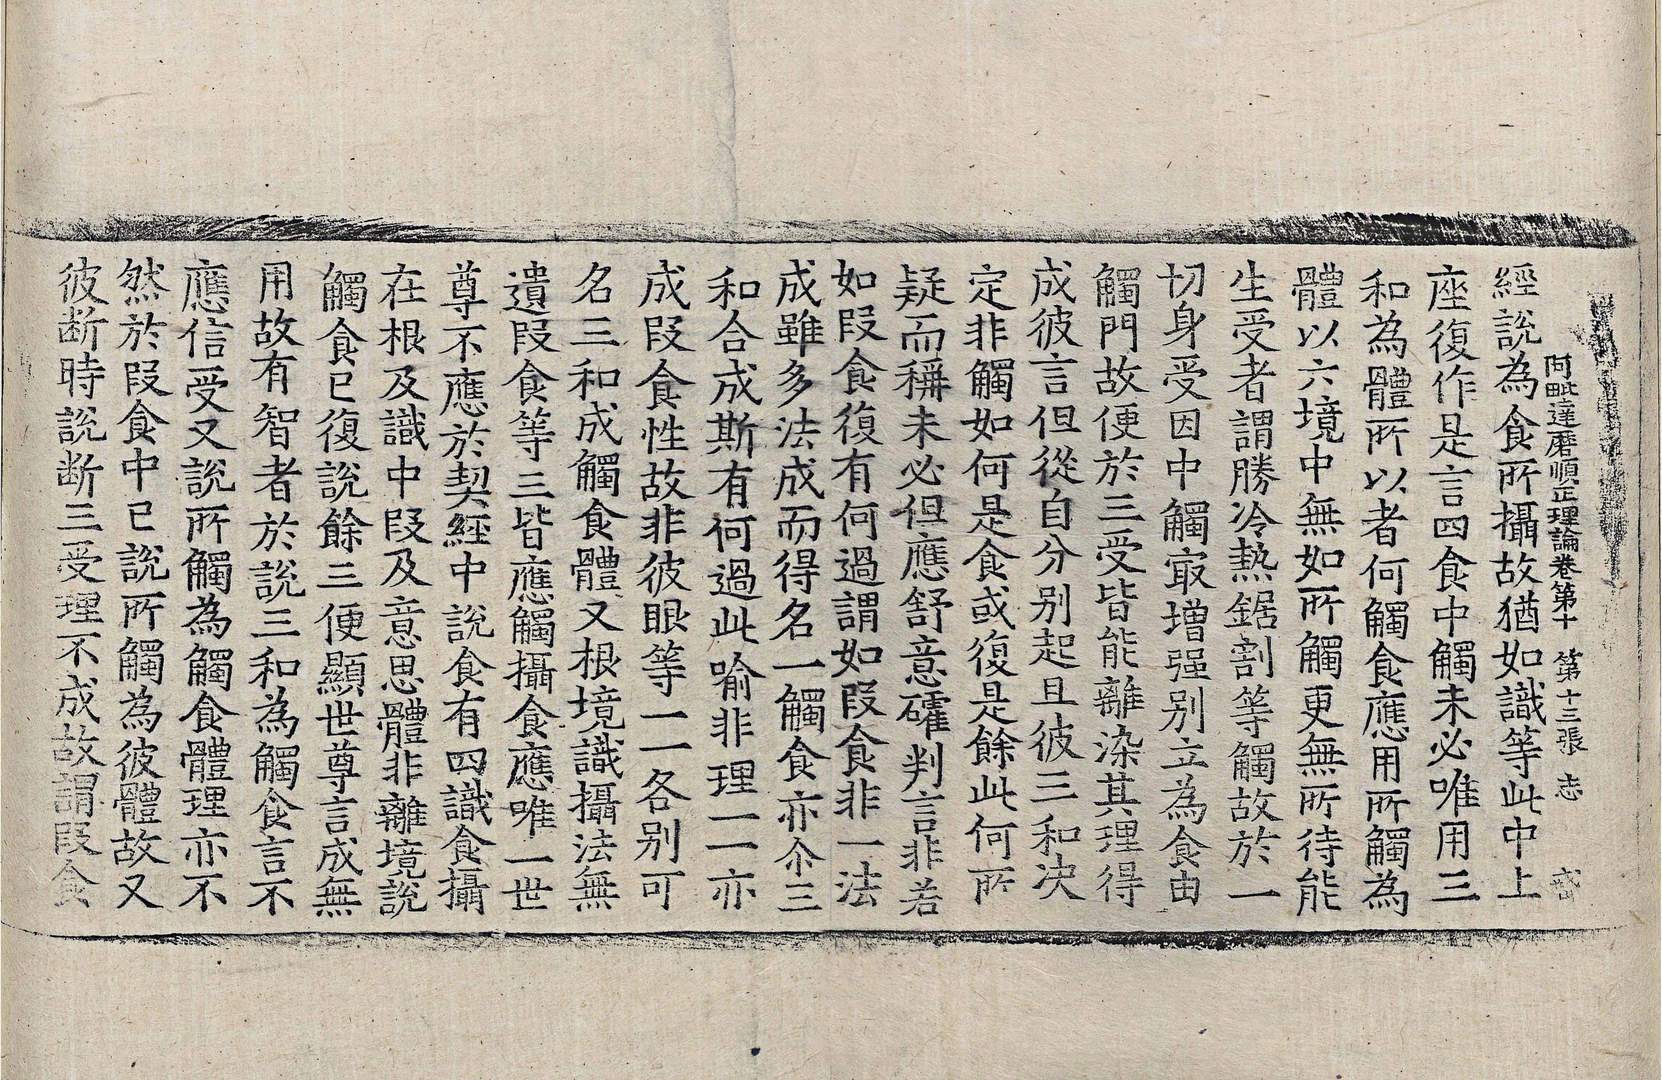 阿毗達磨順正理論卷第十　第十三張　志
經說為食所攝故猶如識等此中上
座復作是言四食中觸未必唯用三
和為體所以者何觸食應用所觸為
體以六境中無如所觸更無所待能
生受者謂勝冷熱鋸割等觸故於一
切身受因中觸㝡增强别立為食由
觸門故便於三受皆能離染其理得
成彼言但從自分别起且彼三和决
定非觸如何是食或復是餘此何所
疑而稱未必但應舒意礭判言非若
如叚食復有何過謂如叚食非一法
成雖多法成而得名一觸食亦尒三
和合成斯有何過此喻非理一一亦
成叚食性故非彼眼等一一各别可
名三和成觸食體又根境識攝法無
遺叚食等三皆應觸攝食應唯一世
尊不應於契經中說食有四識食攝
在根及識中叚及意思體非離境說
觸食已復說餘三便顯世尊言成無
用故有智者於說三和為觸食言不
應信受又說所觸為觸食體理亦不
然於叚食中已說所觸為彼體故又
彼断時說断三受理不成故謂叚食